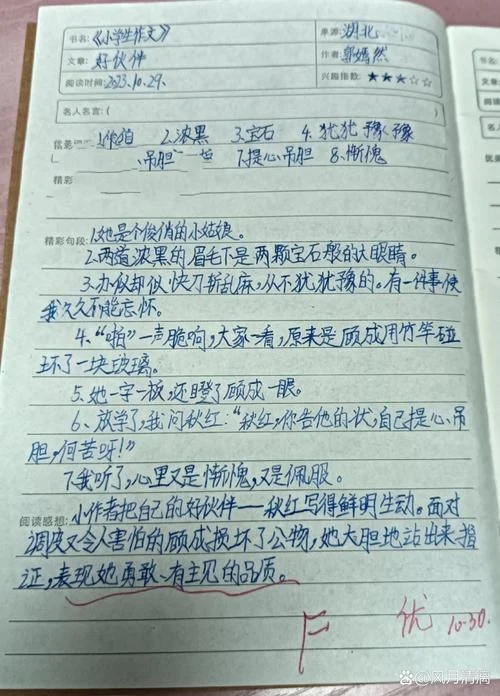 书名:《小学生作文》 来源: 湖北
文章: 好伙伴 作者: 郭嫣然
阅读时间: 2023.10.29. 兴趣指数: ★★★☆☆
名人名言:( )
1. 2.浓黑 3.宝石 4.犹犹豫豫
吊胆 7.提心吊胆 8.惭愧
精彩
精彩句段: 1.她是个俊俏的小姑娘。
2.两道浓黑的眉毛下是两颗宝石般的大眼睛。
3.办似却似快刀斩乱麻,从不犹犹豫的。有一件事使
我久久不能忘怀。
4.“啪”一声脆响,大家一看,原来是顾成用竹竿碰
坏了一块玻璃。
5.她一字一板,还瞪了顾成一眼。
6、放学了,我问秋红:“秋红,你告他的状,自己提心吊
胆,何苦呀!”
7.我听了,心里又是惭愧,又是佩服。
阅读感想: 小作者把自己的好伙伴——秋红写得鲜明生动。面对
调皮又令人害怕的顾成损坏了公物,她大胆地站出来指
证,表现她勇敢、有主见的品质。
优 10.30.
@风月清漪